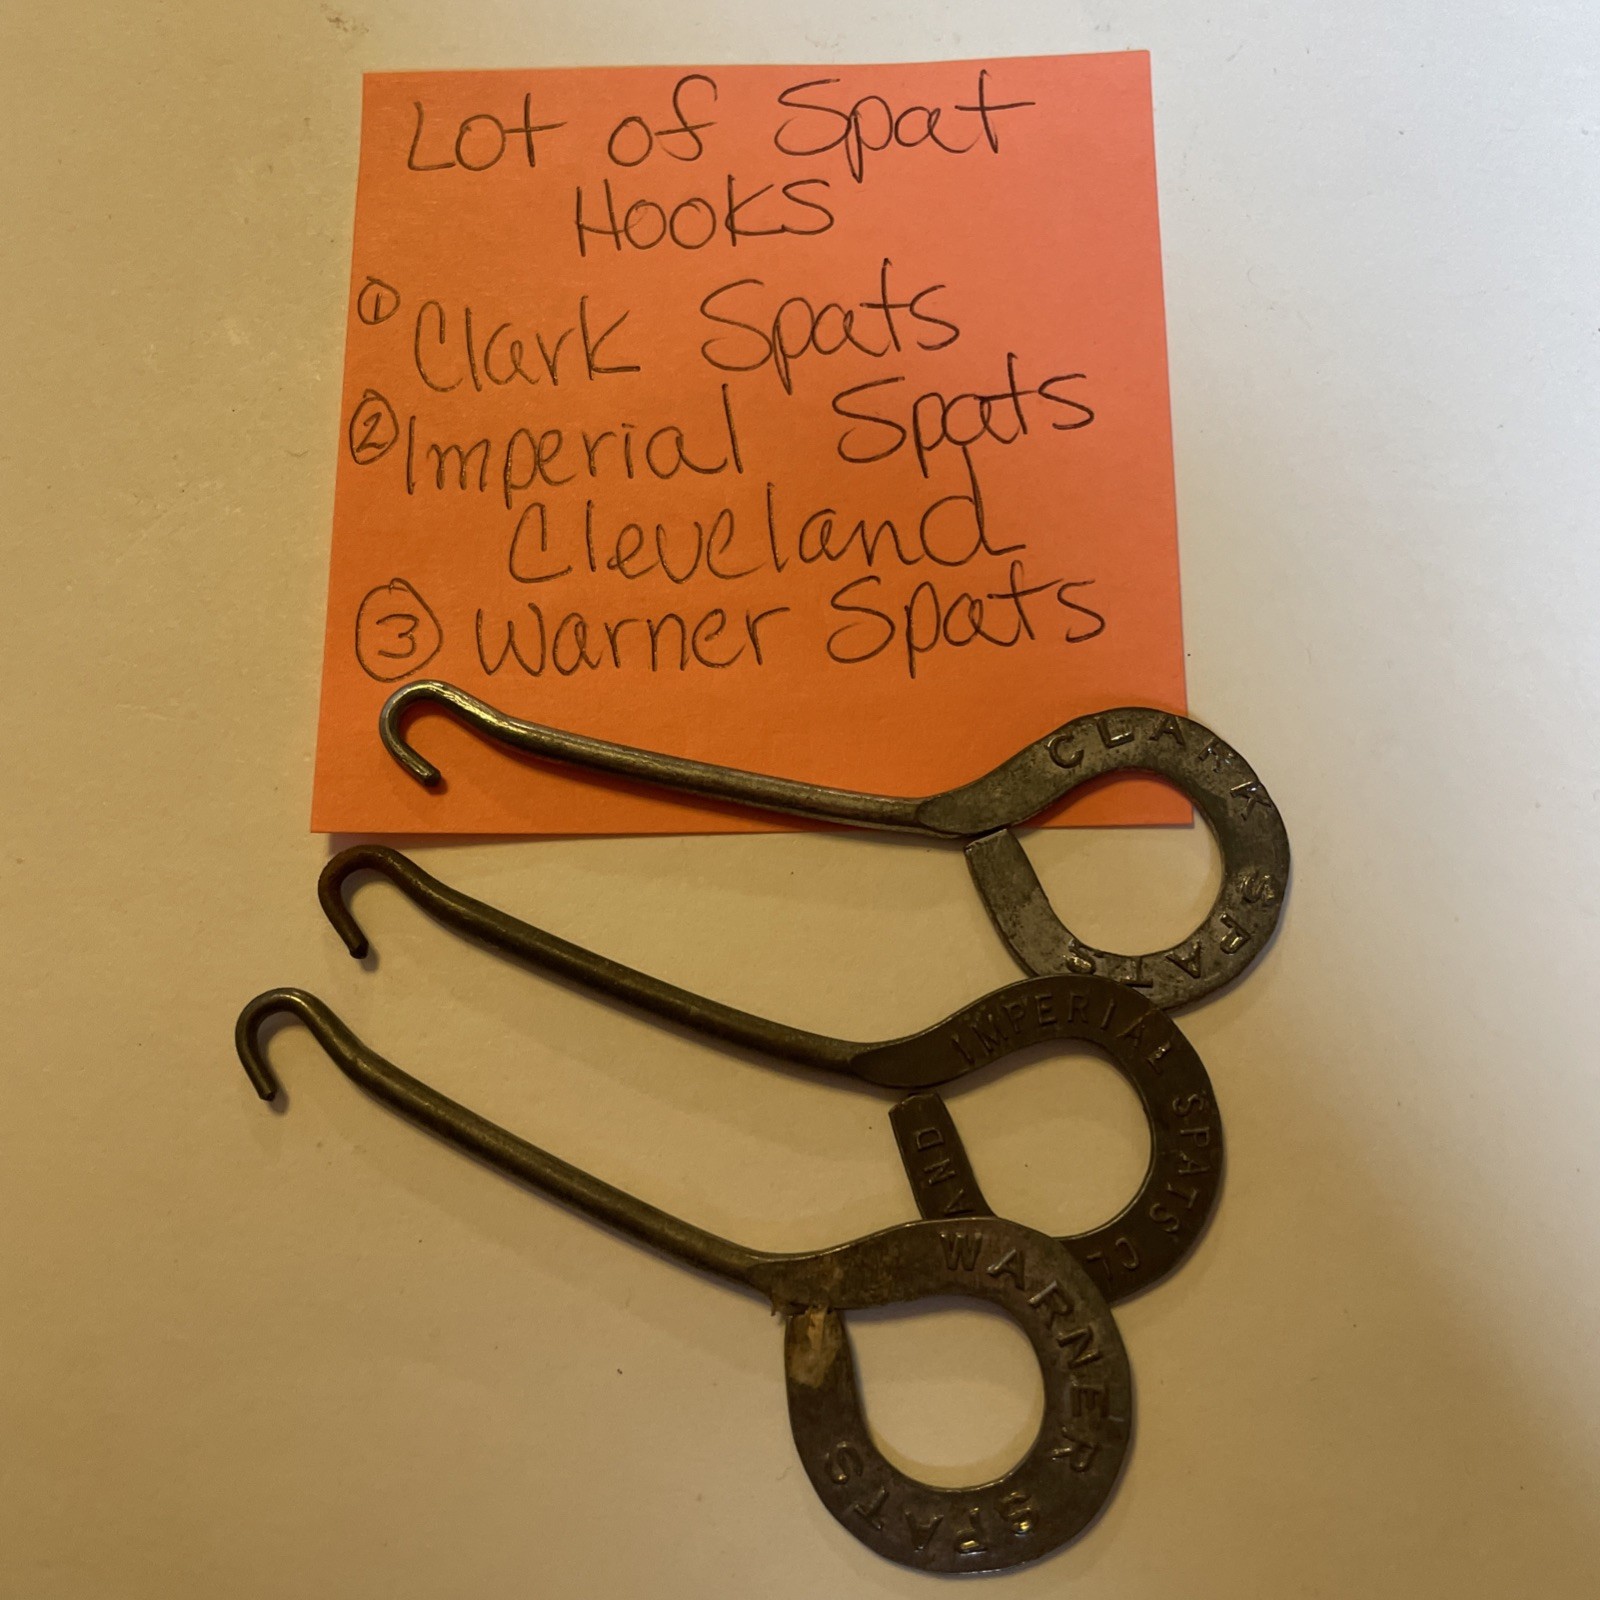 Lot of Spat
Hooks
① Clark Spats
② Imperial Spats
Cleveland
③ Warner Spats
CLARK SPATS
IMPERIAL SPATS CL
AND
WARNER SPATS